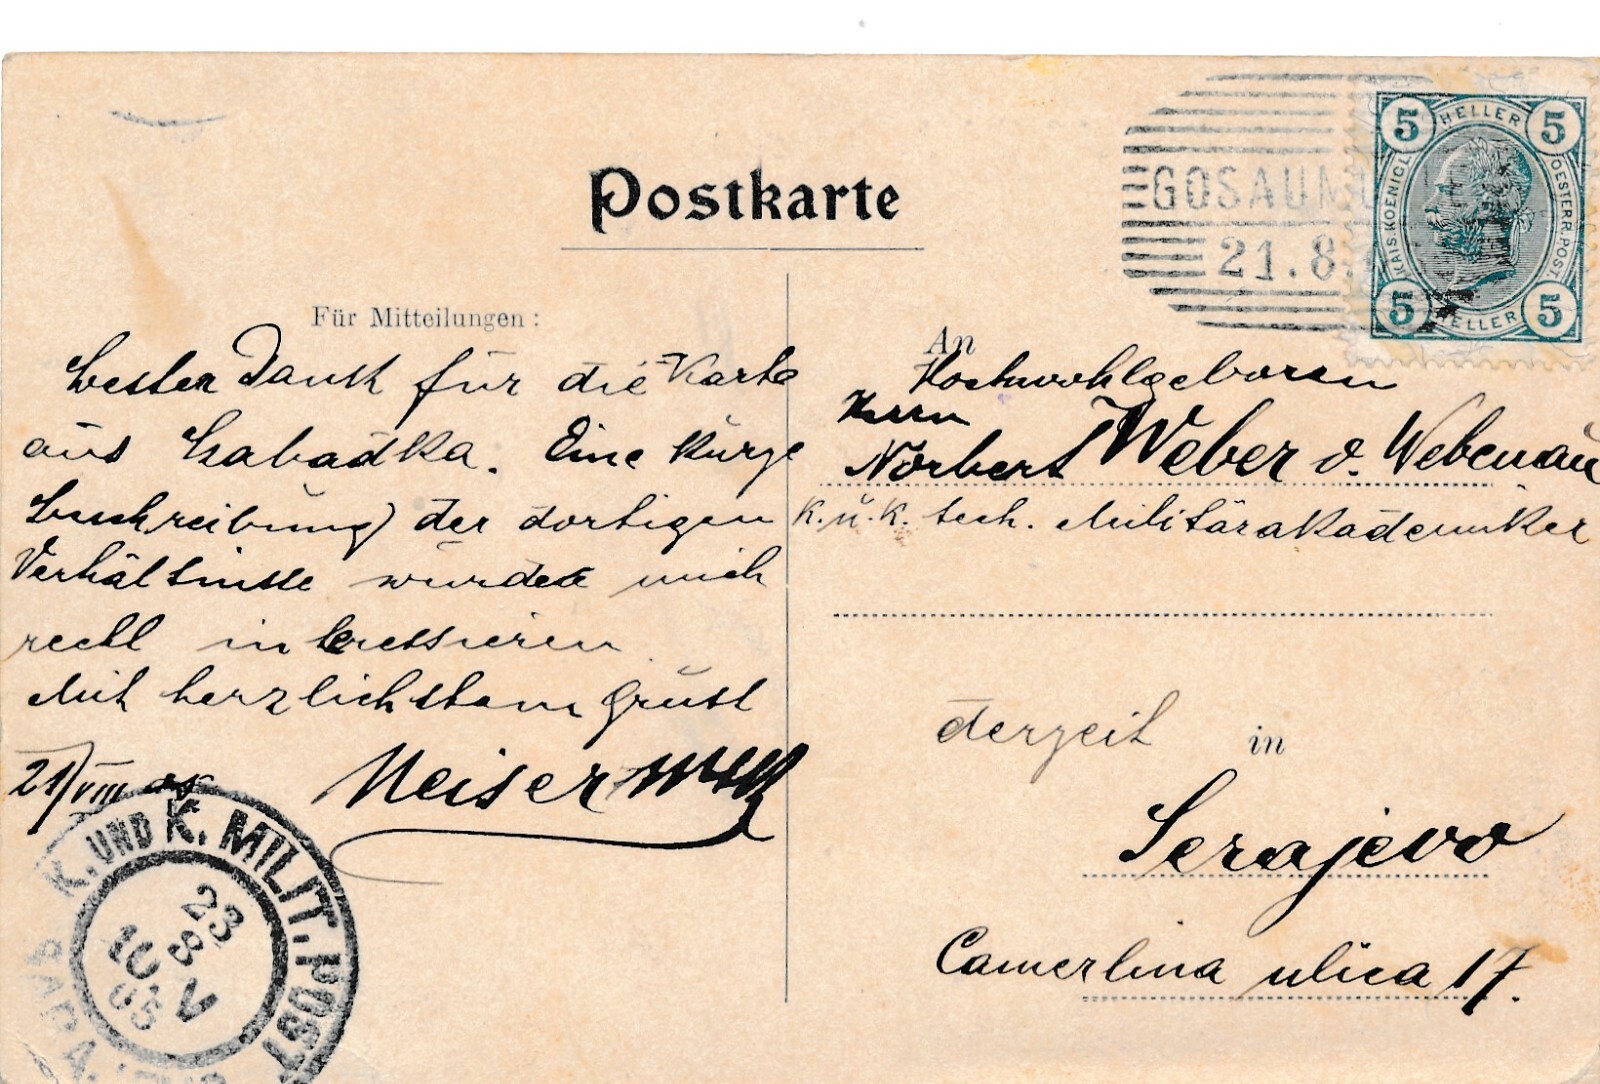 Postkarte
Für Mitteilungen:
besten Dank für die Karte
aus Szabadka. Eine kurze
Beschreibung der dortigen
Verhältnisse würde mich
recht interessieren
Mit herzlichstem Gruß
21/VIII 05 Meiser
An
Hochwohlgeboren
Herrn
Norbert Weber v. Webenau
K. u. K. tech. Militärakademiker
derzeit in
Serajevo
Camerlina ulica 17.
GOSAUM
21.8.
5 HELLER 5
KAIS.KOENIGL. OESTERR.POST.
5 HELLER 5
K. UND K. MILIT. POST
23
8
10 V
05